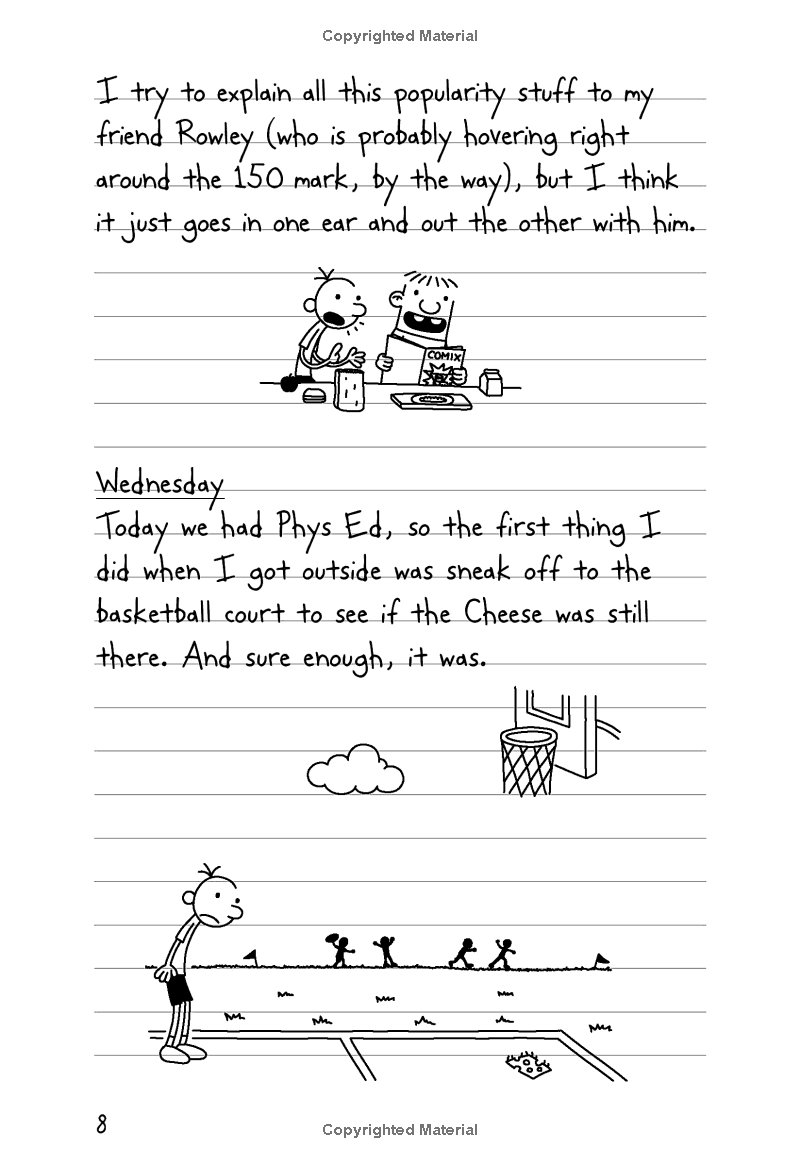 Copyrighted Material
I try to explain all this popularity stuff to my
friend Rowley (who is probably hovering right
around the 150 mark, by the way), but I think
it just goes in one ear and out the other with him.
COMIX
Wednesday
Today we had Phys Ed, so the first thing I
did when I got outside was sneak off to the
basketball court to see if the Cheese was still
there. And sure enough, it was.
8
Copyrighted Material